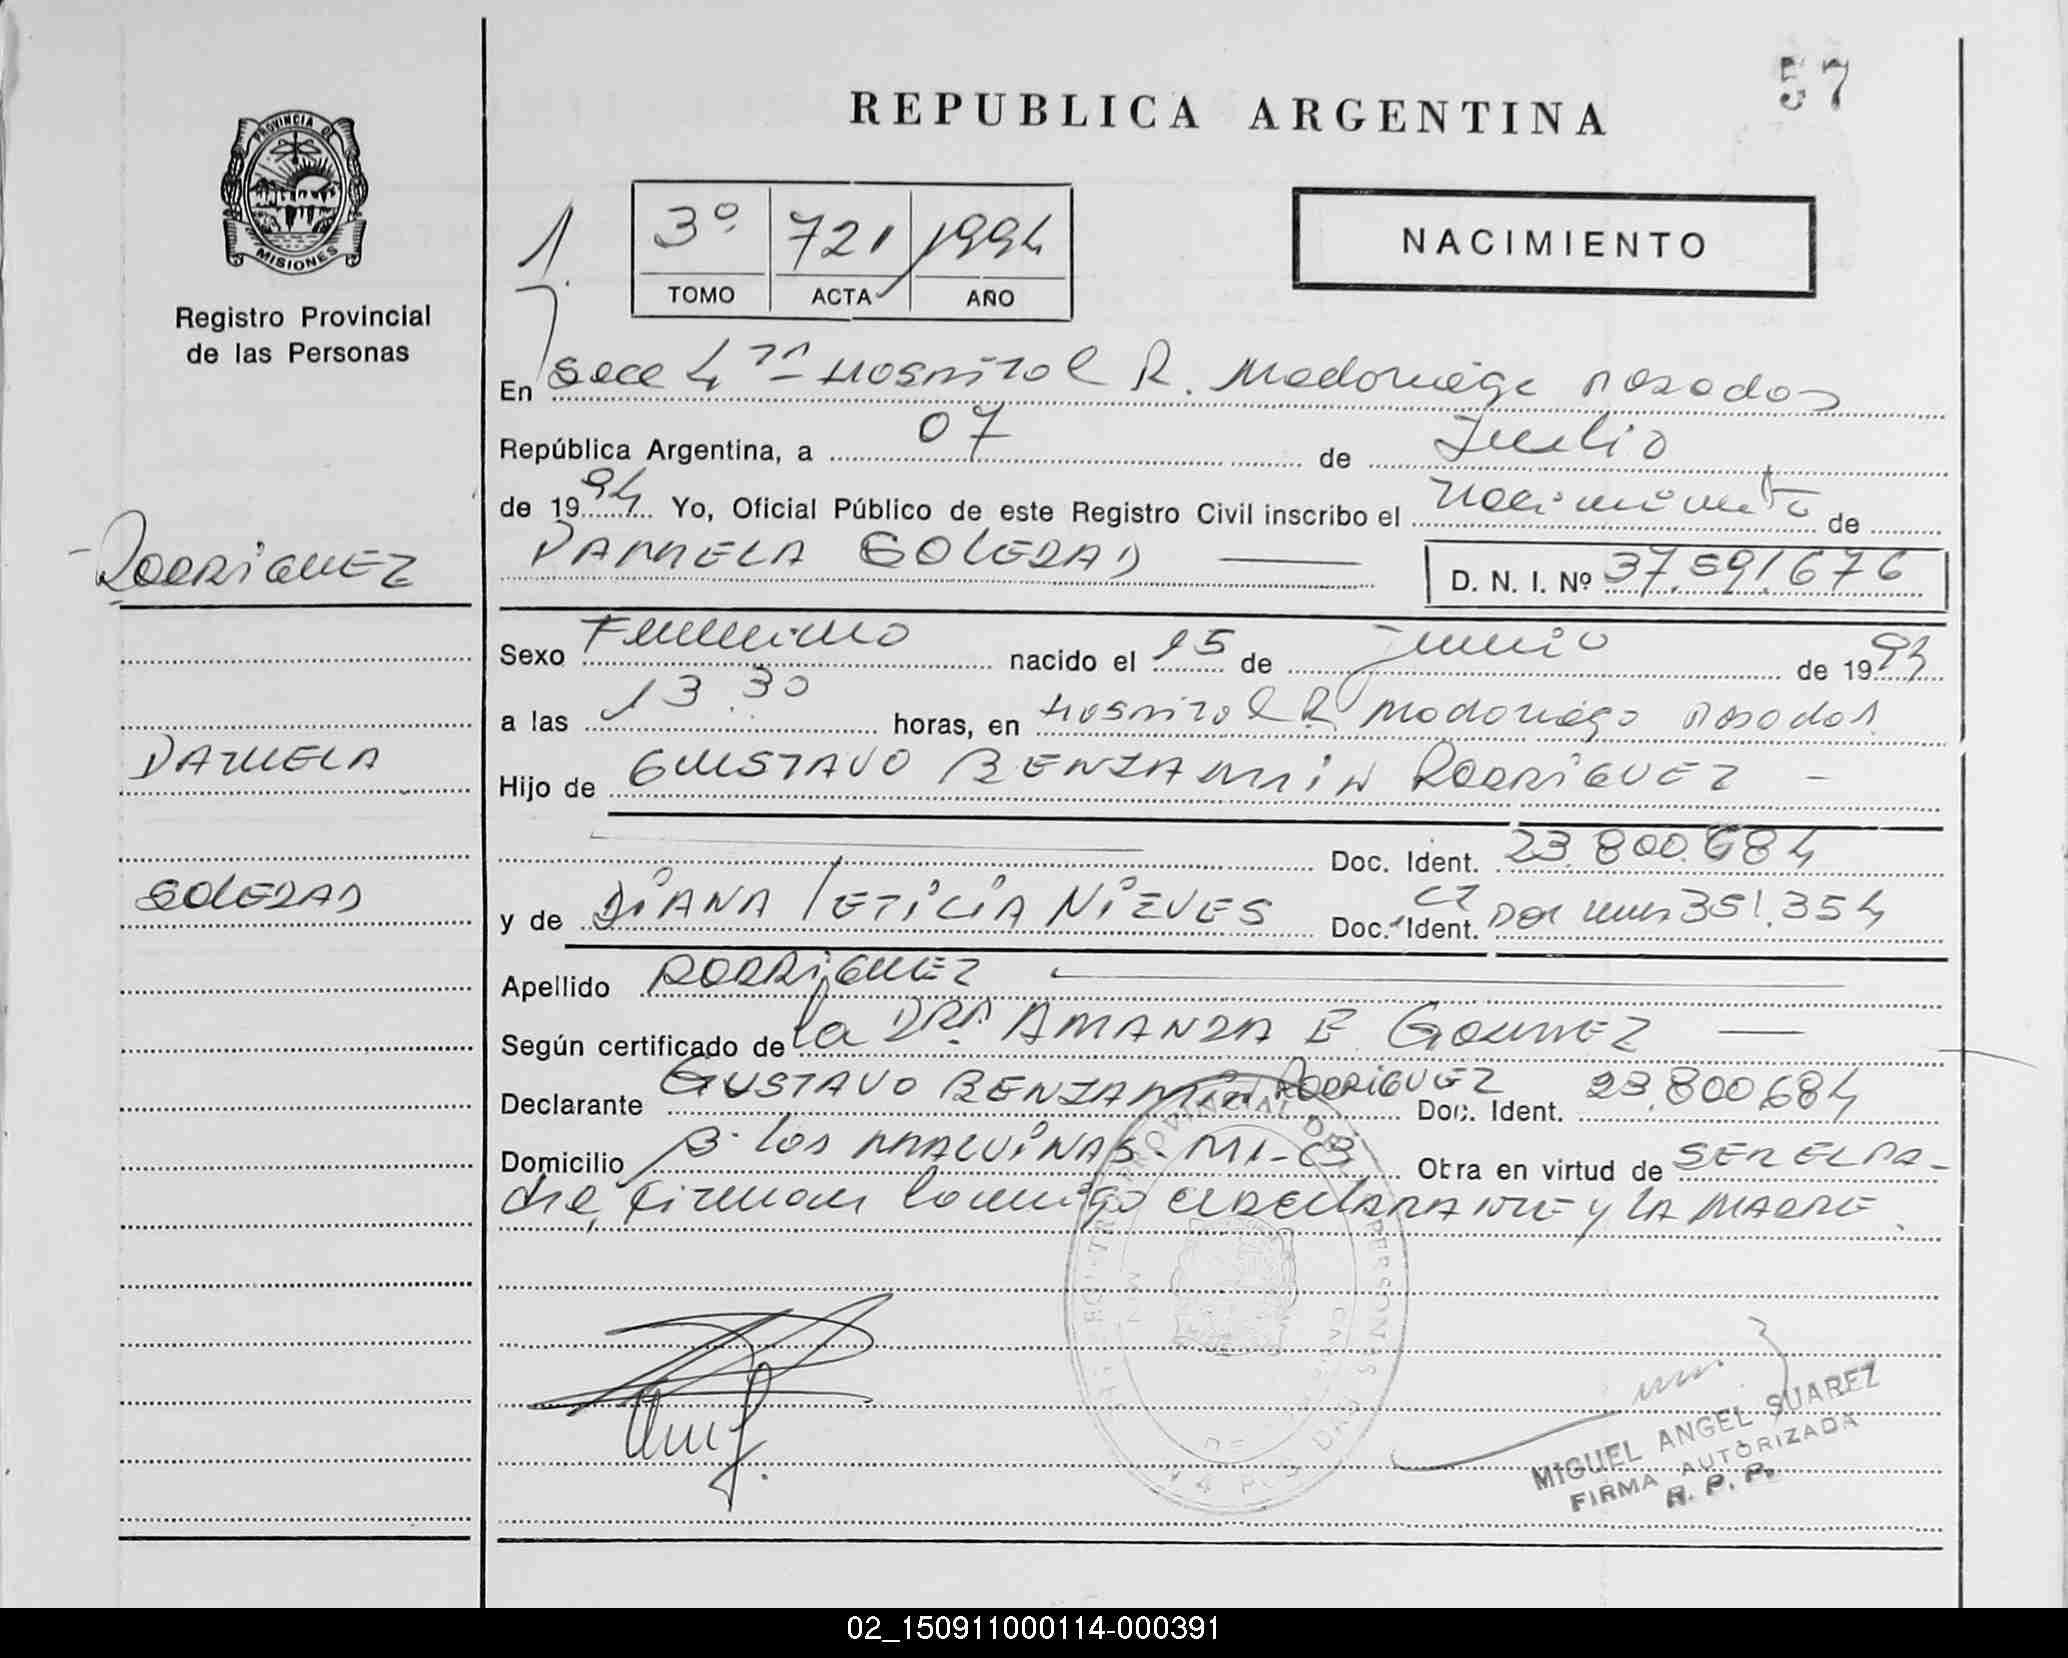 57
REPUBLICA ARGENTINA
PROVINCIA DE
MISIONES
Registro Provincial
de las Personas
NACIMIENTO
1.
3º 721 1994
TOMO ACTA AÑO
En Secc 4ta Hospital R. Madariaga Posadas
República Argentina, a 07 de Julio
de 1994 Yo, Oficial Público de este Registro Civil inscribo el nacimiento de
RODRIGUEZ
PAMELA SOLEDAD
D. N. I. Nº 37.591.676
Sexo Femenino nacido el 15 de junio de 1994
a las 13.30 horas, en Hospital R Madariaga Posadas
PAMELA
Hijo de GUSTAVO BENJAMIN RODRIGUEZ
Doc. Ident. 23.800.684
SOLEDAD
y de DIANA LETICIA NIEVES Doc. Ident. CI Pol Mnes 351.354
Apellido RODRIGUEZ
Según certificado de la DRA AMANDA E GOMEZ
Declarante GUSTAVO BENJAMIN RODRIGUEZ Doc. Ident. 23.800.684
Domicilio B. LOS MALVINAS. M1-C3 Obra en virtud de SER EL PA-
dre, firman conmigo EL DECLARANTE Y LA MADRE.
MIGUEL ANGEL SUAREZ
FIRMA AUTORIZADA
R. P. P.
02_150911000114-000391